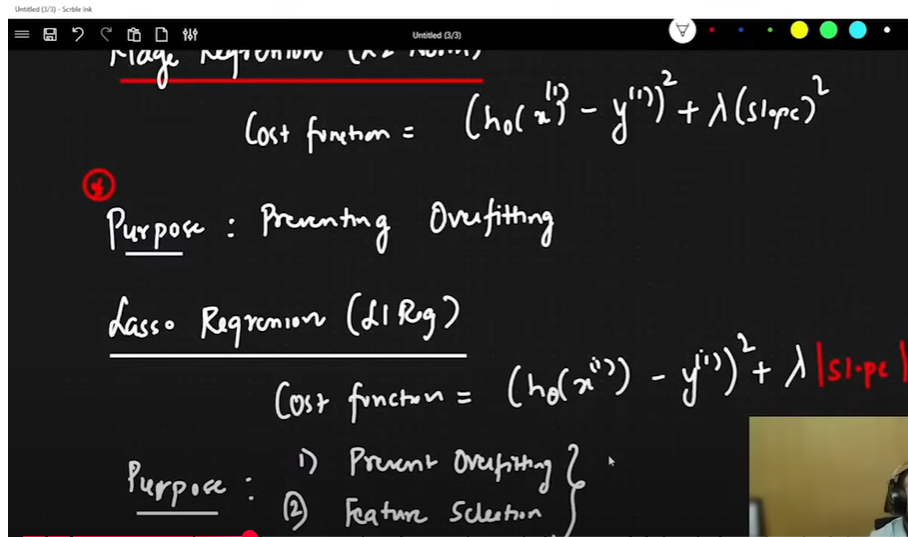 Untitled (3/3) - Scrble Ink
Untitled (3/3)
Ridge Regression (L2 Norm)
Cost function = (hθ(x⁽ⁱ⁾) - y⁽ⁱ⁾)² + λ(slope)²
Purpose : Preventing Overfitting
Lasso Regression (L1 Reg)
Cost function = (hθ(x⁽ⁱ⁾) - y⁽ⁱ⁾)² + λ |slope|
Purpose : 1) Prevent Overfitting
(2) Feature Selection